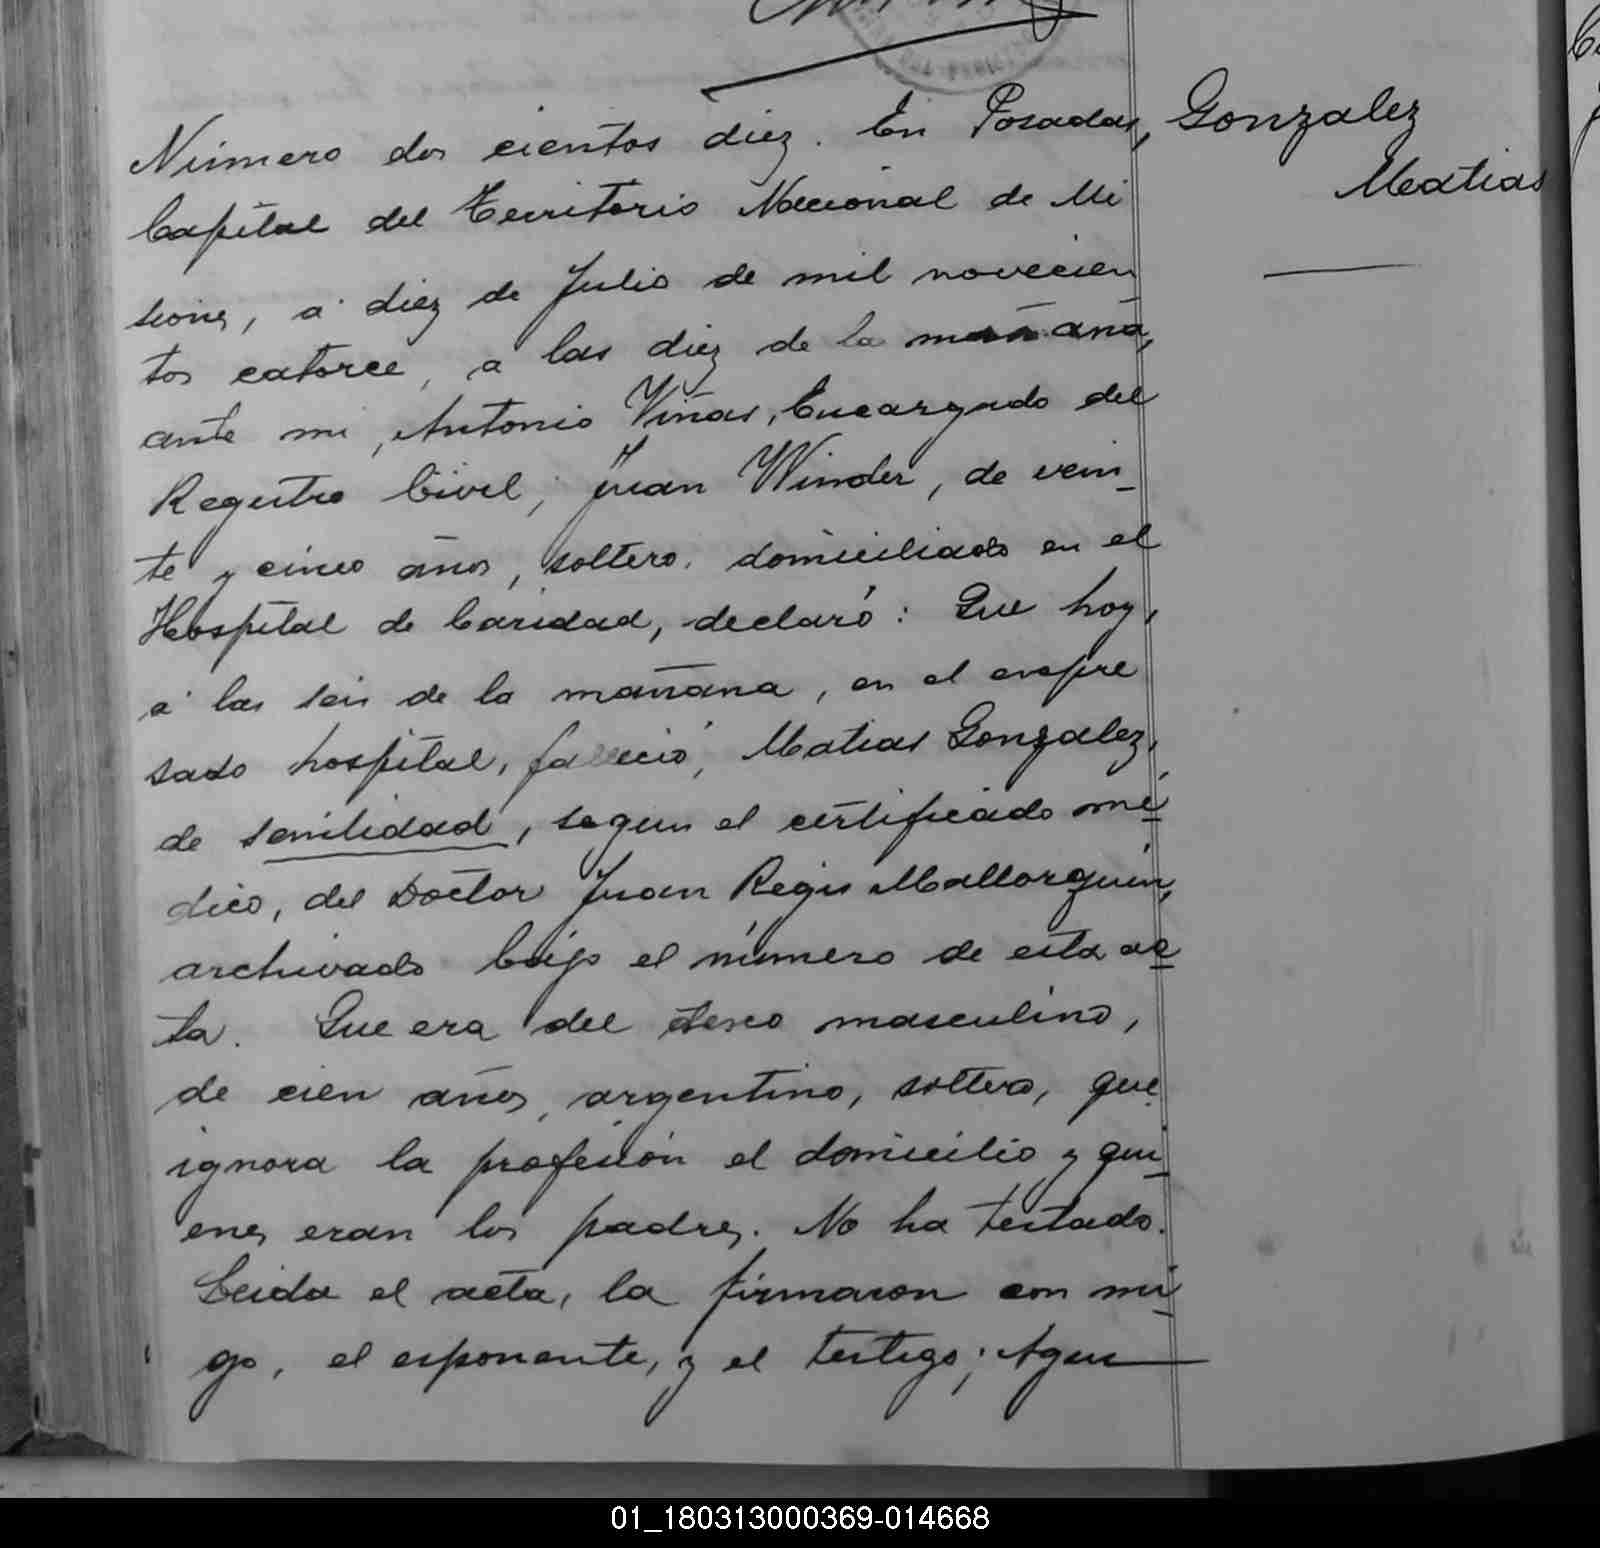 Gonzalez
Matias
Número dos cientos diez. En Posadas,
Capital del Territorio Nacional de Mi
siones, á diez de Julio de mil novecien
tos catorce, a las diez de la mañana,
ante mi, Antonio Viñas, Encargado del
Registro Civil; Juan Winder, de vein_
te y cinco años, soltero, domiciliado en el
Hospital de Caridad, declaró: Que hoy,
á las seis de la mañana, en el expre
sado hospital, falleció, Matias Gonzalez,
de senilidad, segun el certificado mé
dico, del Doctor Juan Regis Mallorquin,
archivado bajo el número de esta ac
ta. Que era del sexo masculino,
de cien años, argentino, soltero, que
ignora la profesión el domicilio y qui_
enes eran los padres. No ha testado.
Leida el acta, la firmaron con mi
go, el esponente, y el testigo; Agus
01_180313000369-014668